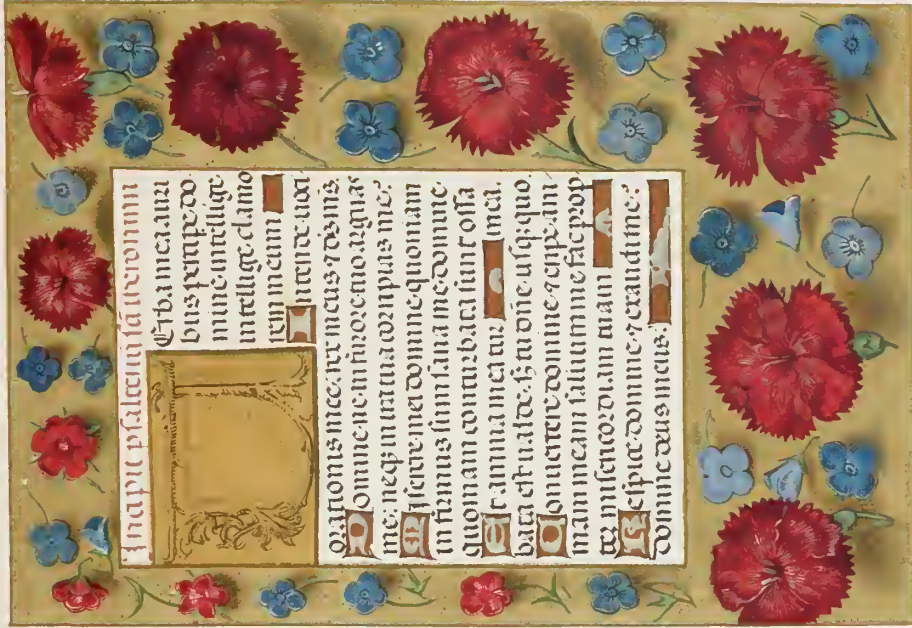 Incipit psalteriu sāti ieronimi
Erba mea auri
bus percipe do
mine intellige
intellige clamo
rem meum
Intende uoci
orationis mee: rex meus ⁊ deus
Domine ne in furore tuo arguas
me: neqꝫ in ira tua corripias me.
Miserere mei domine quoniam
infirmus sum sana me domine
quoniam conturbata sunt ossa
Et anima mea tur (mea.
bata est ualde. sꝫ tu dn̄e usqꝫ quo
Conuertere domine ⁊ eripe ani
mam meam saluum me fac prop
ter misericordiam tuam
Respice domine ⁊ exaudi me:
domine deus meus: